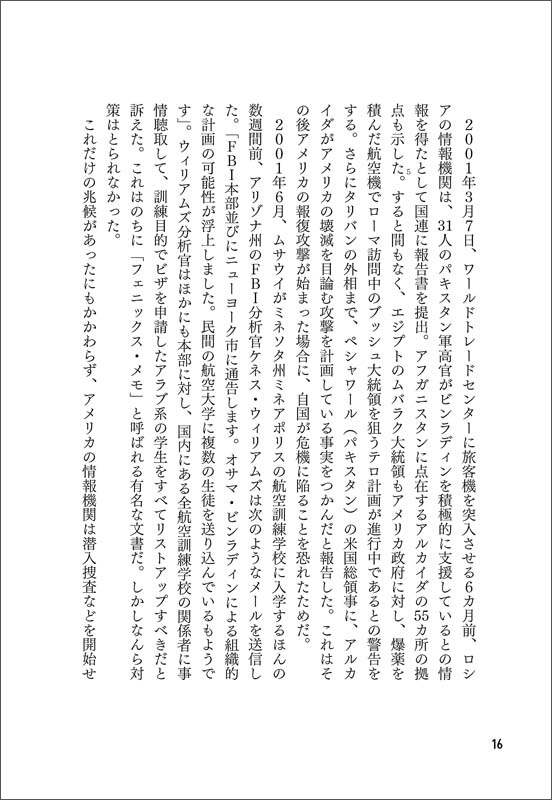 ２００１年３月７日、ワールドトレードセンターに旅客機を突入させる６カ月前、ロシ
アの情報機関は、31人のパキスタン軍高官がビンラディンを積極的に支援しているとの情
報を得たとして国連に報告書を提出。アフガニスタンに点在するアルカイダの55カ所の拠
点も示した。5すると間もなく、エジプトのムバラク大統領もアメリカ政府に対し、爆薬を
積んだ航空機でローマ訪問中のブッシュ大統領を狙うテロ計画が進行中であるとの警告を
する。さらにタリバンの外相まで、ペシャワール（パキスタン）の米国総領事に、アルカ
イダがアメリカの壊滅を目論む攻撃を計画している事実をつかんだと報告した。これはそ
の後アメリカの報復攻撃が始まった場合に、自国が危機に陥ることを恐れたためだ。
　２００１年６月、ムサウイがミネソタ州ミネアポリスの航空訓練学校に入学するほんの
数週間前、アリゾナ州のＦＢＩ分析官ケネス・ウィリアムズは次のようなメールを送信し
た。「ＦＢＩ本部並びにニューヨーク市に通告します。オサマ・ビンラディンによる組織的
な計画の可能性が浮上しました。民間の航空大学に複数の生徒を送り込んでいるもようで
す」。ウィリアムズ分析官はほかにも本部に対し、国内にある全航空訓練学校の関係者に事
情聴取して、訓練目的でビザを申請したアラブ系の学生をすべてリストアップすべきだと
訴えた。これはのちに「フェニックス・メモ」と呼ばれる有名な文書だ。しかしなんら対
策はとられなかった。
　これだけの兆候があったにもかかわらず、アメリカの情報機関は潜入捜査などを開始せ
16